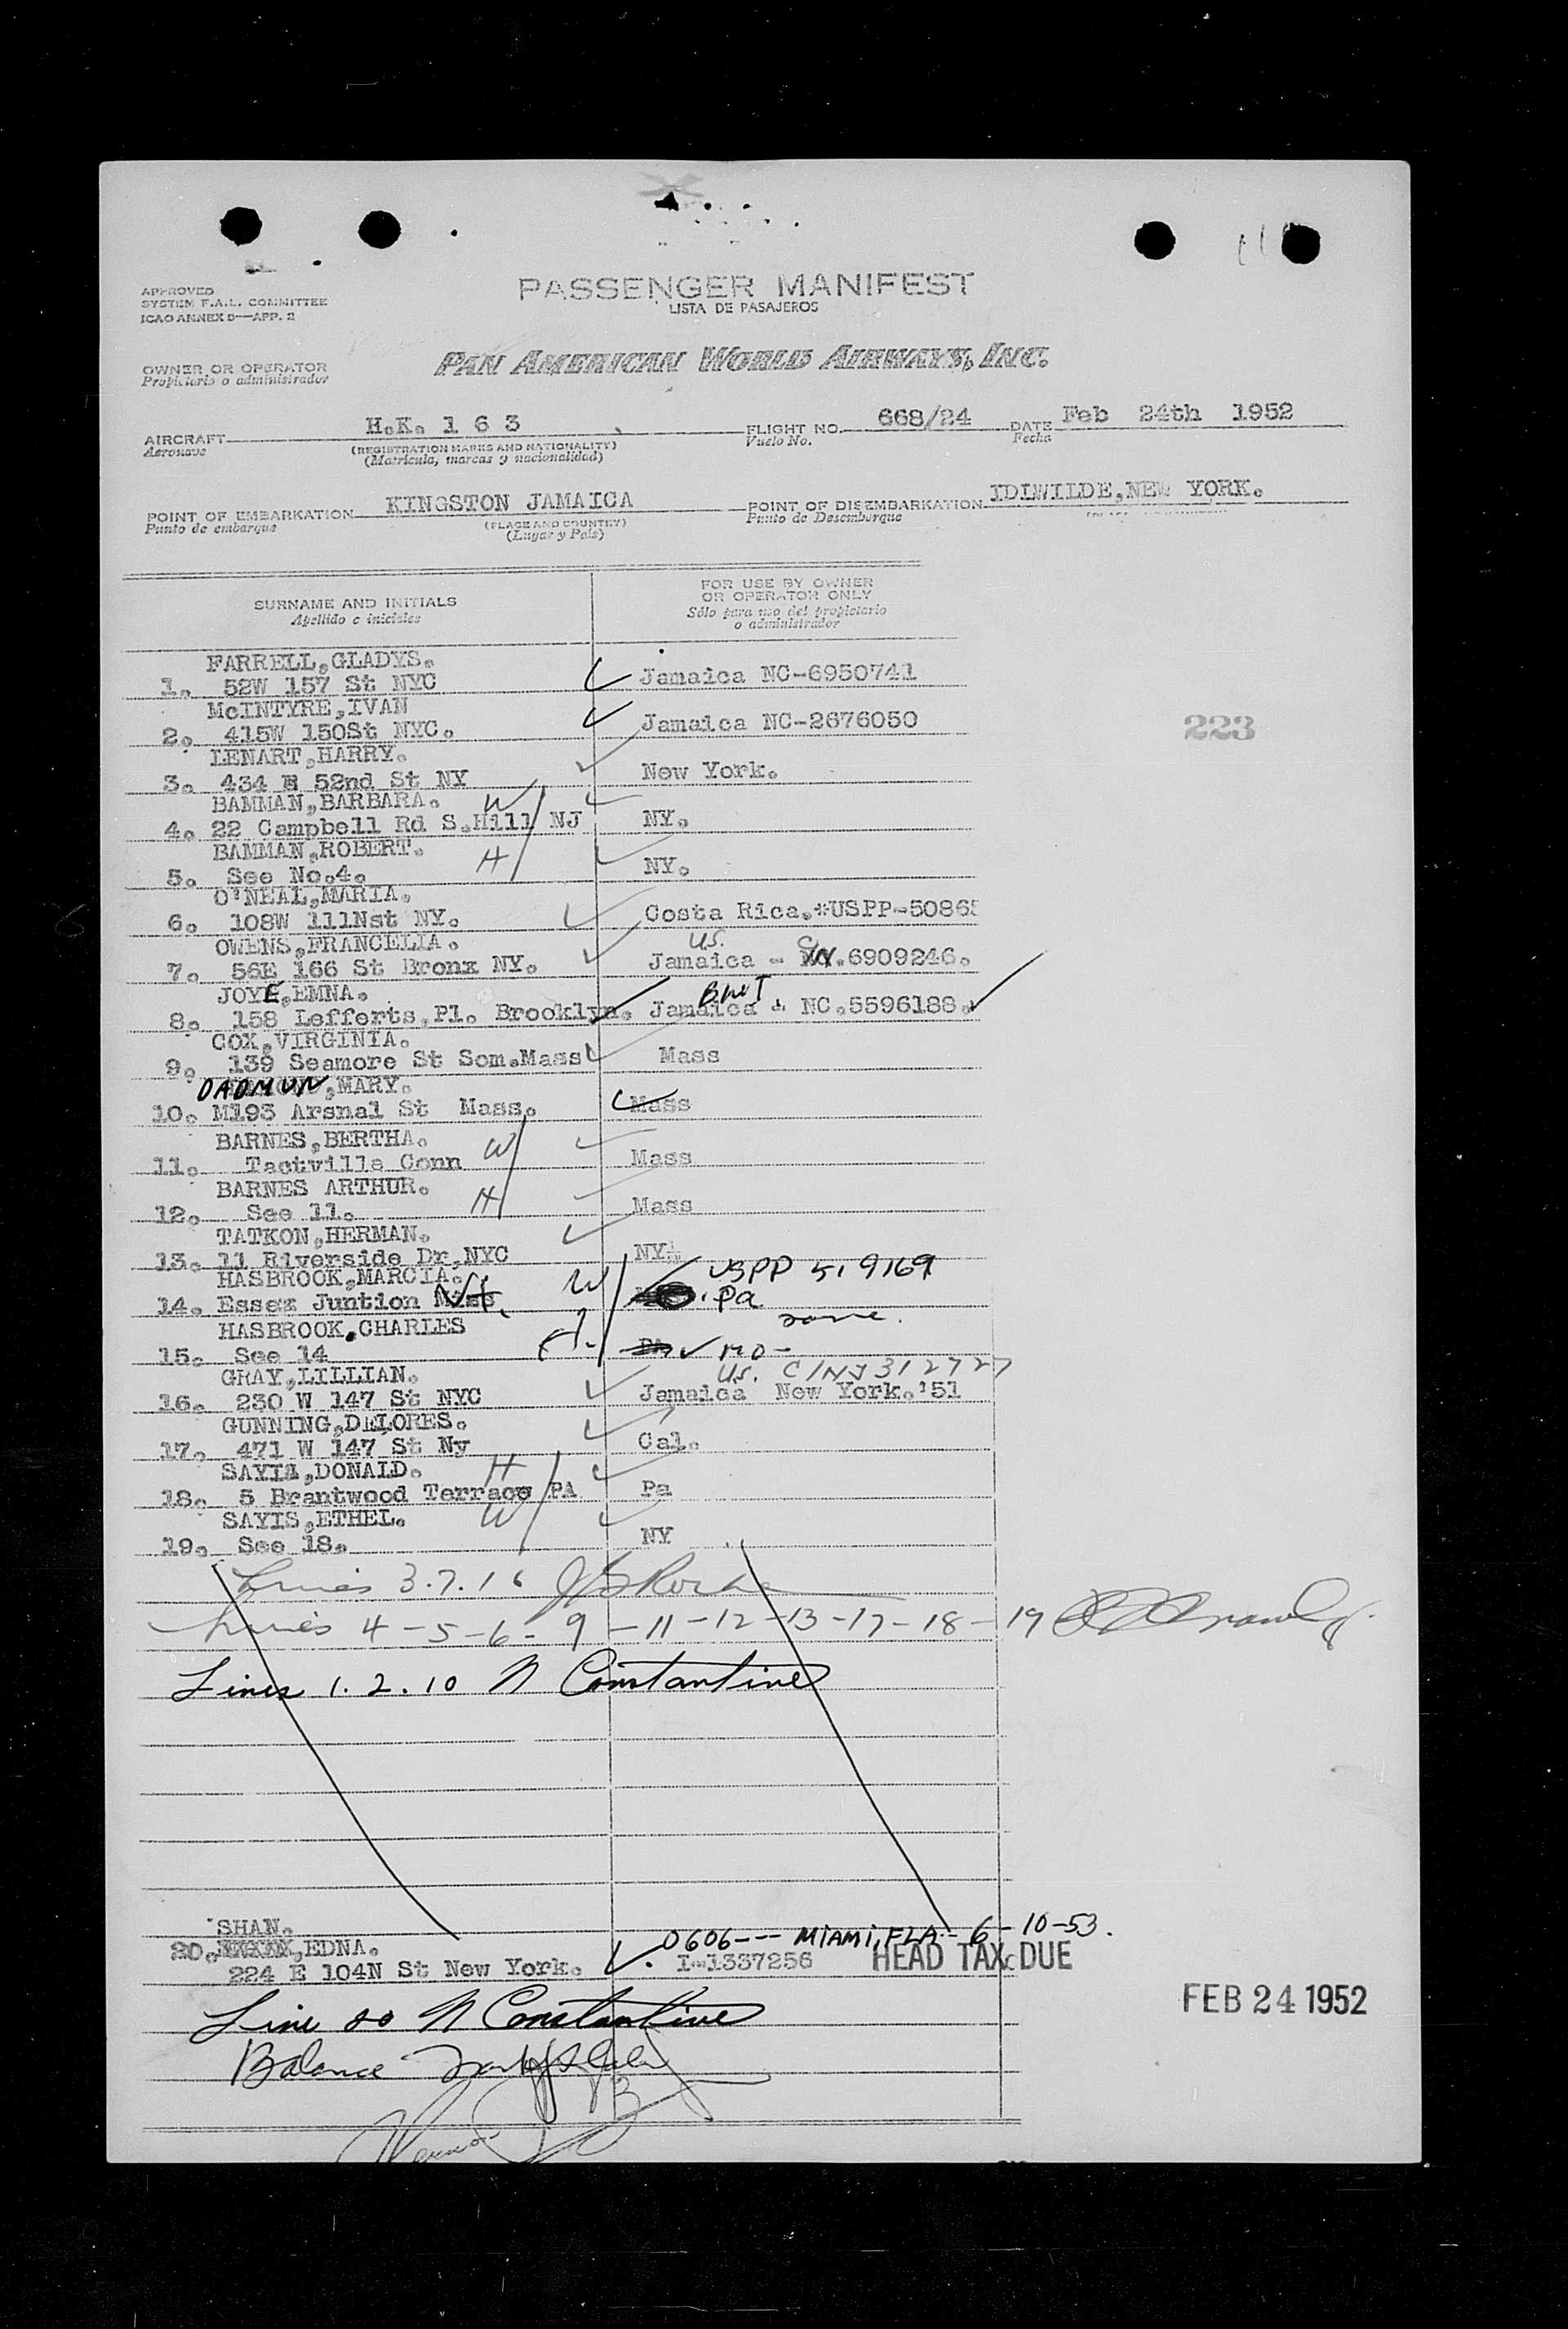 APPROVED
SYSTEM F.A.L. COMMITTEE
ICAO ANNEX 9—APP. 2
PASSENGER MANIFEST
LISTA DE PASAJEROS
OWNER OR OPERATOR
Propietario o administrador
PAN AMERICAN WORLD AIRWAYS, INC.
AIRCRAFT H.K. 1 6 3 FLIGHT NO. 668/24 DATE Feb 24th 1952
Aeronave (REGISTRATION MARKS AND NATIONALITY) Vuelo No. Fecha
(Matricula, marcas y nacionalidad)
POINT OF EMBARKATION KINGSTON JAMAICA POINT OF DISEMBARKATION IDIWILDE,NEW YORK.
Punto de embarque (PLACE AND COUNTRY) Punto de Desembarque
(Lugar y País)
SURNAME AND INITIALS
Apellido e iniciales
FOR USE BY OWNER
OR OPERATOR ONLY
Sólo para uso del propietario
o administrador
FARRELL,GLADYS.
1. 52W 157 St NYC Jamaica NC-6950741
McINTYRE,IVAN
2. 415W 150St NYC. Jamaica NC-2676050
223
LENART,HARRY.
3. 434 E 52nd St NY New York.
BAMMAN,BARBARA. W
4. 22 Campbell Rd S.Hill NJ NY.
BAMMAN,ROBERT. H
5. See No.4. NY.
O'NEAL,MARIA.
6. 108W 111Nst NY. Costa Rica.*USPP-50865
OWENS,FRANCELIA. U.S.
7. 56E 166 St Bronx NY. Jamaica - .6909246.
JOYE,EMNA. BWI
8. 158 Lefferts,Pl. Brooklyn. Jamaica - NC.5596188.
COX,VIRGINIA.
9. 139 Seamore St Som.Mass Mass
DADMUN,MARY.
10. M193 Arsnal St Mass. Mass
BARNES,BERTHA. W
11. Tactville Conn Mass
BARNES ARTHUR. H
12. See 11. Mass
TATKON,HERMAN.
13. 11 Riverside Dr,NYC NY.
HASBROOK,MARCIA. W USPP 519169
14. Essex Juntion Vt. Pa
HASBROOK,CHARLES H same.
15. See 14 MO-
GRAY,LILLIAN. U.S. C/NJ 312727
16. 230 W 147 St NYC Jamaica New York.'51
GUNNING,DELORES.
17. 471 W 147 St Ny Cal.
SAYIS,DONALD. H
18. 5 Brantwood Terrace PA Pa
SAYIS,ETHEL. W
19. See 18. NY
Lines 3.7.16
Lines 4-5-6-9-11-12-13-17-18-19
Lines 1.2.10 N Constantine
SHAN.
0606--- MIAMI, FLA- 6-10-53.
20. ,EDNA.
224 E 104N St New York. I-1337256 HEAD TAX DUE
FEB 24 1952
Line 20 N Constantine
Balance